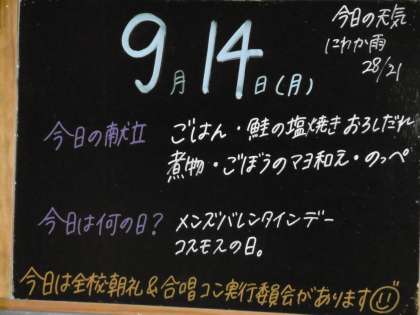 9月14日(月)
今日の天気
にわか雨
28/21
今日の献立 ごはん・鮭の塩焼きおろしだれ
煮物・ごぼうのマヨ和え・のっぺ
今日は何の日? メンズバレンタインデー
コスモスの日。
今日は全校朝礼&合唱コン実行委員会があります